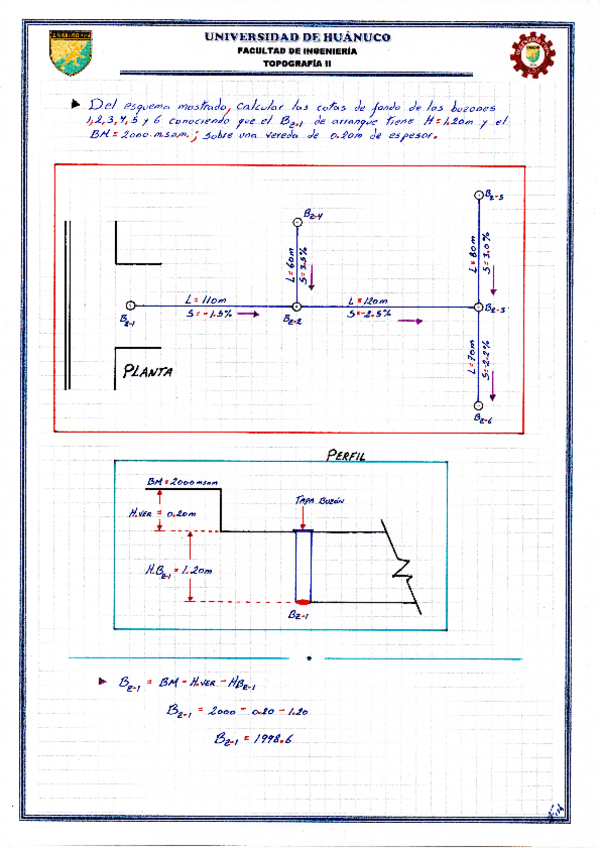 UNIVERSIDAD DE HUÁNUCO
FACULTAD DE INGENIERÍA
TOPOGRAFÍA II
► Del esquema mostrado, calcular las cotas de fondo de los buzones
1,2,3,4,5 y 6 conociendo que el Bz-1 de arranque tiene H=1.20m y el
BM=2000.msnm.; sobre una vereda de 0.20m de espesor.
Bz-5
Bz-4
L=60m
S=3.5%
L=80m
S=3.0%
L=110m
S=-1.5%
L=120m
S=-2.5%
Bz-1
Bz-2
Bz-3
PLANTA
L=70m
S=2.2%
Bz-6
PERFIL
BM=2000msnm
H.VER = 0.20m
TAPA BUZÓN
H.Bz-1 = 1.20m
Bz-1
► Bz-1 = BM - H.VER - HBz-1
Bz-1 = 2000 - 0.20 - 1.20
Bz-1 = 1998.6